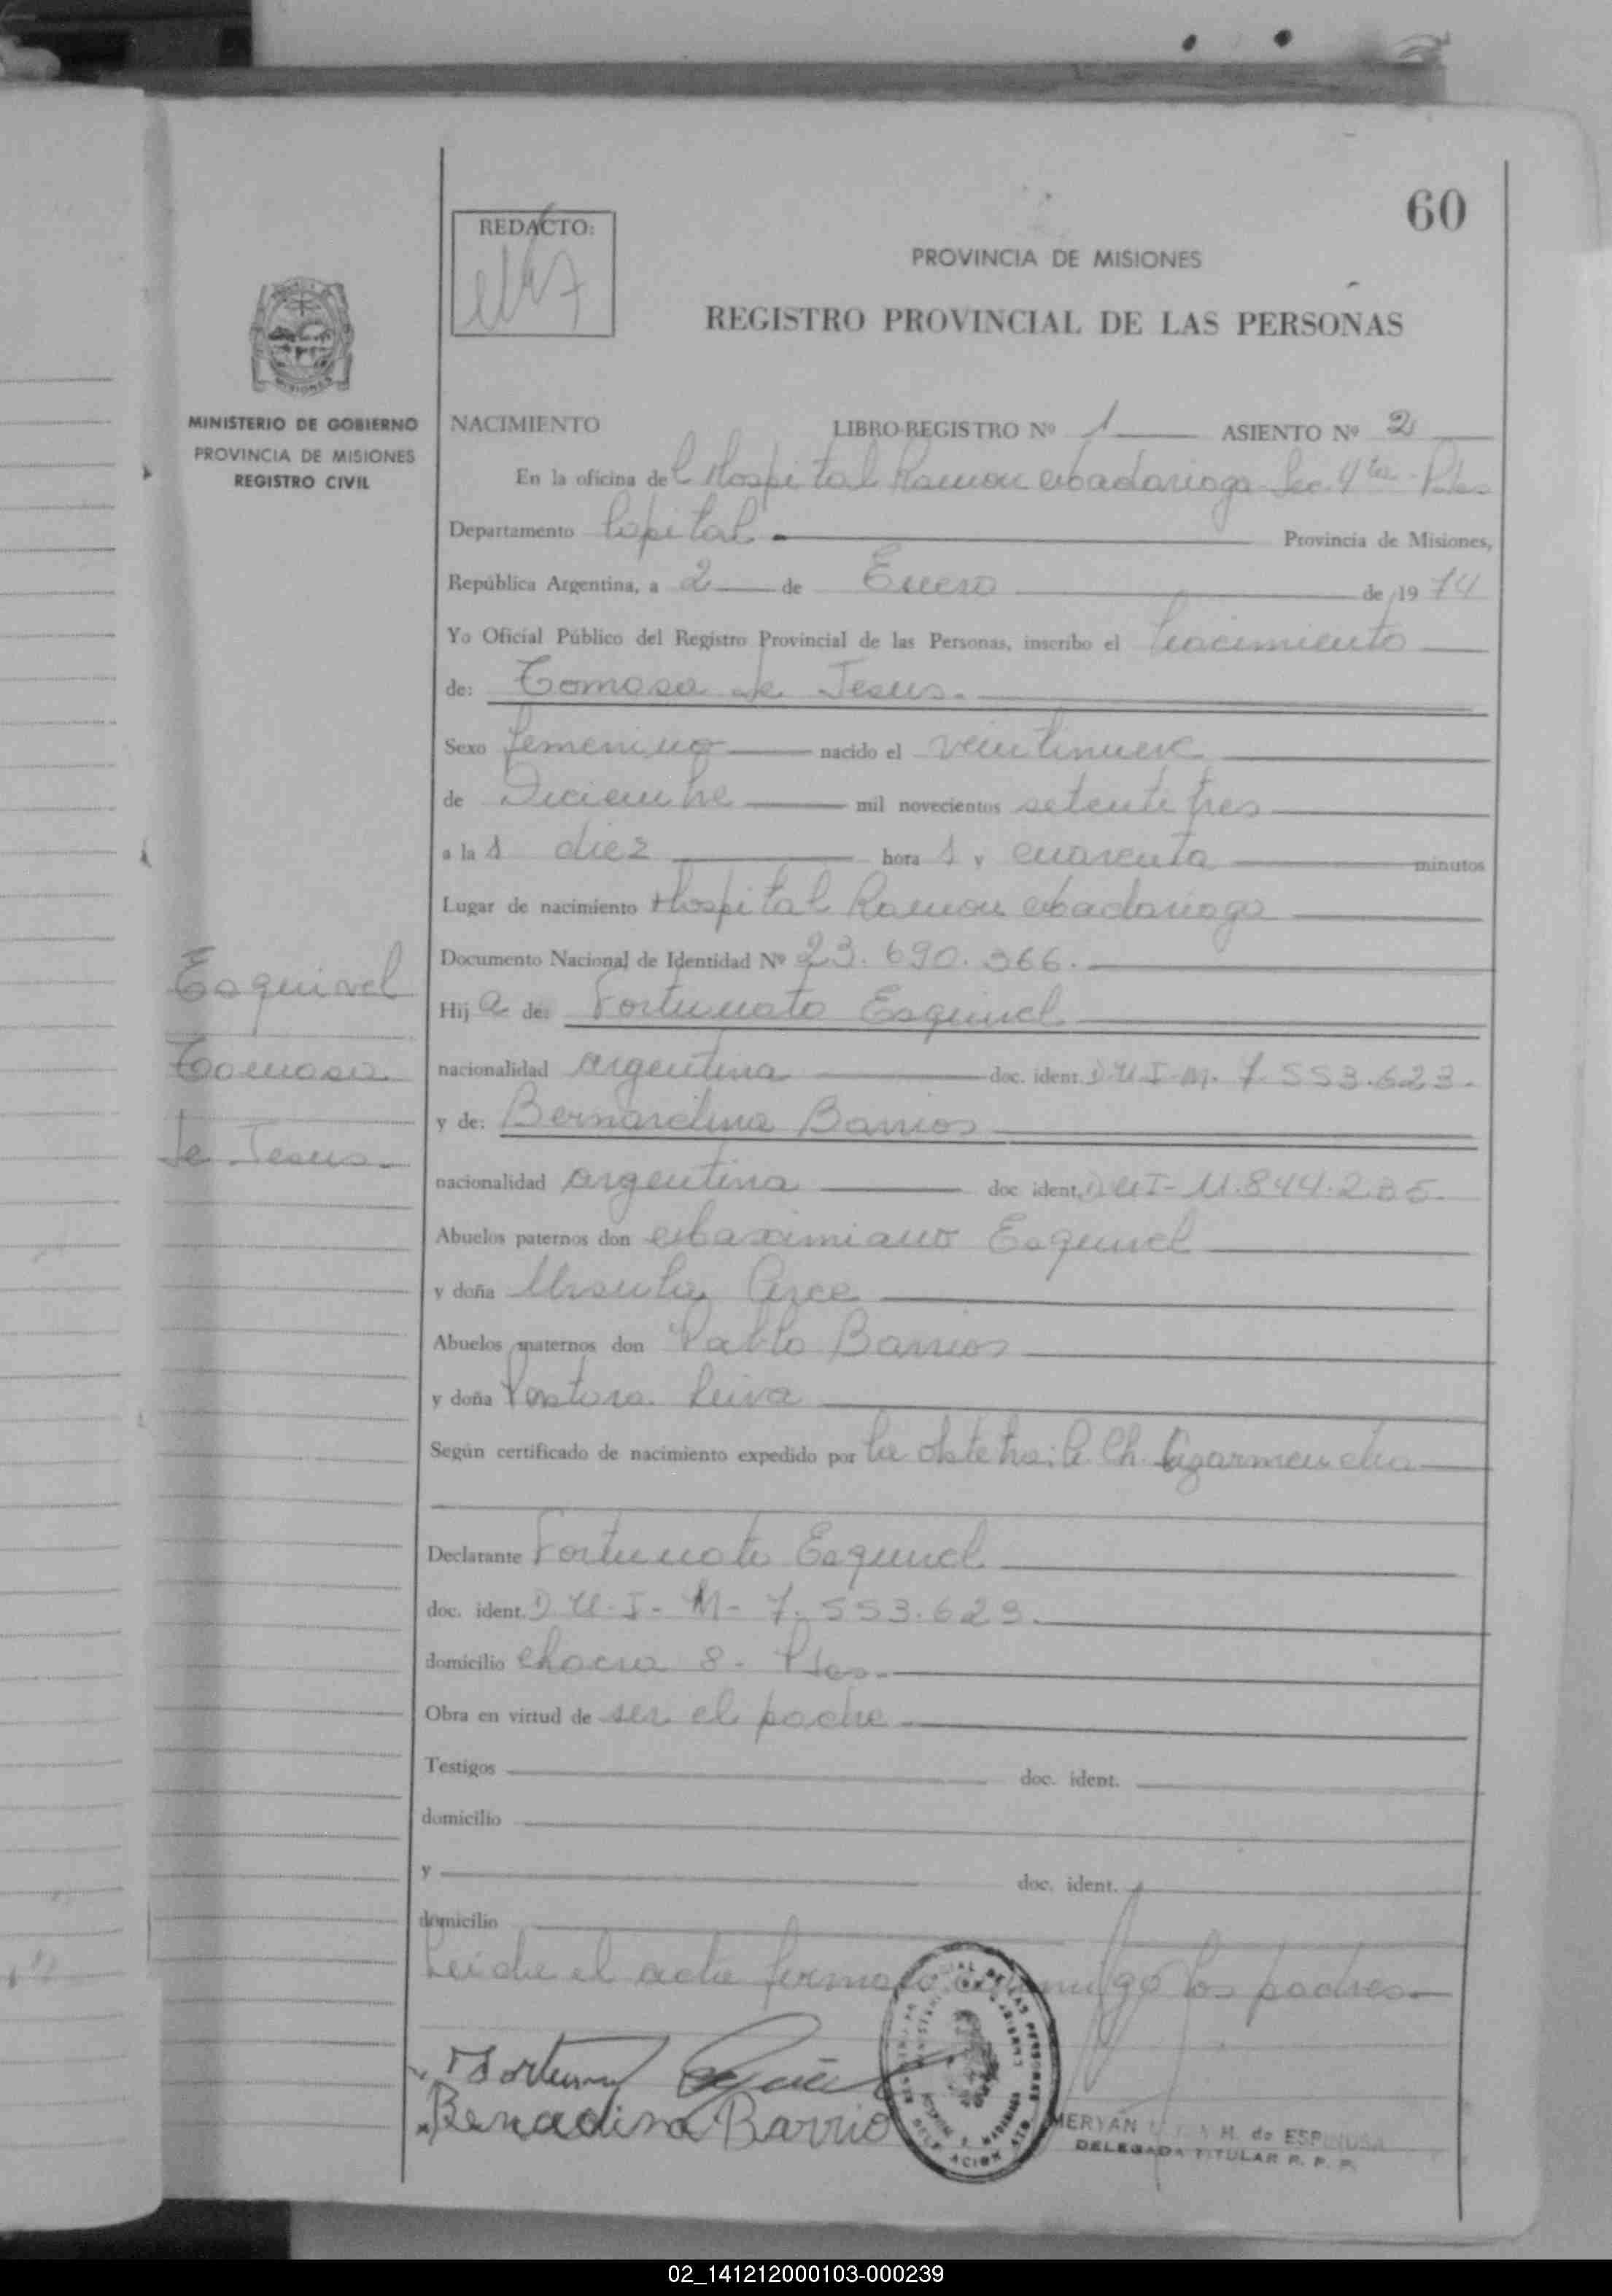 60
REDACTO:
PROVINCIA DE MISIONES
REGISTRO PROVINCIAL DE LAS PERSONAS
MINISTERIO DE GOBIERNO
PROVINCIA DE MISIONES
REGISTRO CIVIL
NACIMIENTO LIBRO-REGISTRO Nº 1 ASIENTO Nº 2
En la oficina del Hospital Ramon Madariaga Sec. 4ta Pdas
Departamento Capital Provincia de Misiones,
República Argentina, a 2 de Enero de 1974
Yo Oficial Público del Registro Provincial de las Personas, inscribo el nacimiento
de: Tomasa de Jesus.
Sexo femenino nacido el veintinueve
de Diciembre mil novecientos setenta tres
a las diez horas y cuarenta minutos
Lugar de nacimiento Hospital Ramon Madariaga
Documento Nacional de Identidad Nº 23.690.366.
Esquivel
Tomasa
de Jesus.
Hija de: Fortunato Esquivel
nacionalidad argentina doc. ident. D.U.I-M. 7.553.623.
y de: Bernardina Barrios
nacionalidad argentina doc ident. D.U.I- 11.844.235.
Abuelos paternos don Maximiano Esquivel
y doña Ursula Arce
Abuelos maternos don Pablo Barrios
y doña Pastora Leiva
Según certificado de nacimiento expedido por la obstetra: Ch.
Declarante Fortunato Esquivel
doc. ident. D.U.I- M- 7.553.623.
domicilio chacra 8. Pdas.
Obra en virtud de ser el padre
Testigos doc. ident.
domicilio
y doc. ident.
domicilio
Leida el acta firman conmigo los padres
Bernadina Barrio
MERYAN M. de ESPINOSA
DELEGADA TITULAR R. P. P.
02_141212000103-000239